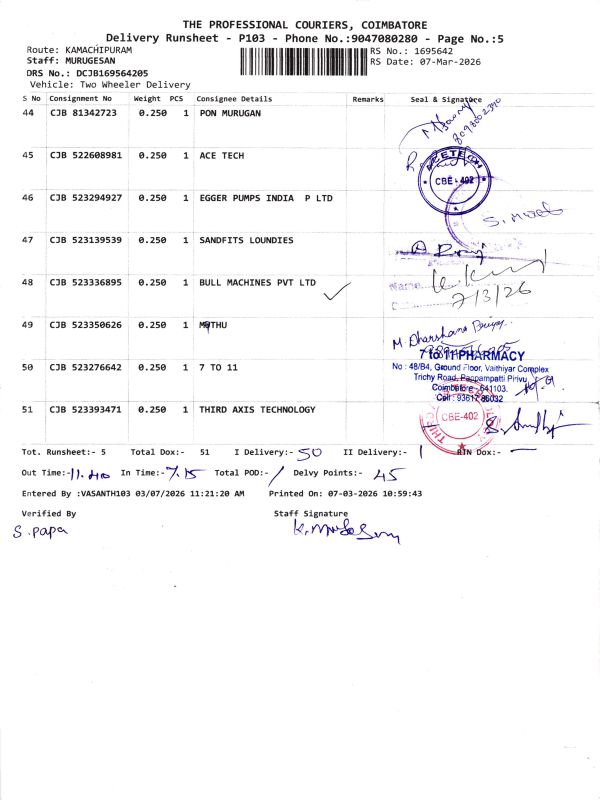 THE PROFESSIONAL COURIERS, COIMBATORE
Delivery Runsheet - P103 - Phone No.:9047080280 - Page No.:5
Route: KAMACHIPURAM
RS No.: 1695642
Staff: MURUGESAN
RS Date: 07-Mar-2026
DRS No.: DCJB169564205
Vehicle: Two Wheeler Delivery
S No Consignment No Weight PCS Consignee Details Remarks Seal & Signature
44 CJB 81342723 0.250 1 PON MURUGAN
45 CJB 522608981 0.250 1 ACE TECH
ACETECH
CBE - 402
46 CJB 523294927 0.250 1 EGGER PUMPS INDIA P LTD
47 CJB 523139539 0.250 1 SANDFITS LOUNDIES
48 CJB 523336895 0.250 1 BULL MACHINES PVT LTD
Name
7/3/26
49 CJB 523350626 0.250 1 MUTHU
M. Dharshana
50 CJB 523276642 0.250 1 7 TO 11
7 to 11 PHARMACY
No : 48/B4, Ground Floor, Vaithiyar Complex
Trichy Road, Pappampatti Pirivu,
Coimbatore - 641103.
Cell : 93617 86032
51 CJB 523393471 0.250 1 THIRD AXIS TECHNOLOGY
CBE-402
Tot. Runsheet:- 5 Total Dox:- 51 I Delivery:- 50 II Delivery:- 1 RTN Dox:- —
Out Time:- 11.40 In Time:- 7.15 Total POD:- / Delvy Points:- 45
Entered By :VASANTH103 03/07/2026 11:21:20 AM Printed On: 07-03-2026 10:59:43
Verified By Staff Signature
S. Papa